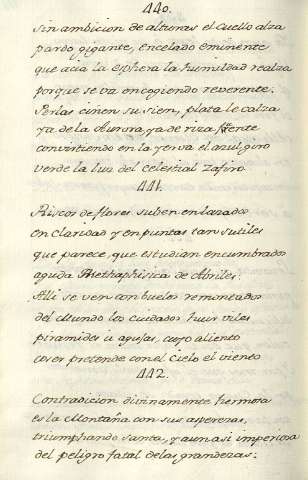 440.
sin ambicion de alturas el cuello alza
pardo gigante, encelado eminente
que acia la esphera la humildad realza
porque se va encogiendo reverente.
Perlas ciñen su sien, plata le calza
ya de la Aurora, ya de riza frente
convirtiendo en la yerva el azul giro
verde la luz del celestial zafiro
441.
Riscos de flores suben enlazados
en claridad y en puntas tan sutiles
que parece, que estudian encumbrados
aguda Methaphisica de Abriles.
Alli se ven con buelos remontados
del Mundo los cuidados huir viles
piramides u agujas, cuyo aliento
coser pretende con el cielo el viento
442.
Contradicion divinamente hermosa
es la Montaña con sus asperezas,
triumphando santa, y aun asi imperiosa
del peligro fatal de las grandezas: